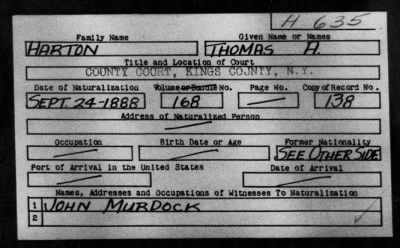 H 635
Family Name Given Name or Names
HARTON THOMAS A.
Title and Location of Court
COUNTY COURT, KINGS COJNTY, N.Y.
Date of Naturalization Volume or Bundle No. Page No. Copy of Record No.
SEPT. 24-1888 168 — 138
Address of Naturalized Person
Occupation Birth Date or Age Former Nationality
SEE OTHER SIDE
Port of Arrival in the United States Date of Arrival
Names, Addresses and Occupations of Witnesses To Naturalization
1 JOHN MURDOCK
2